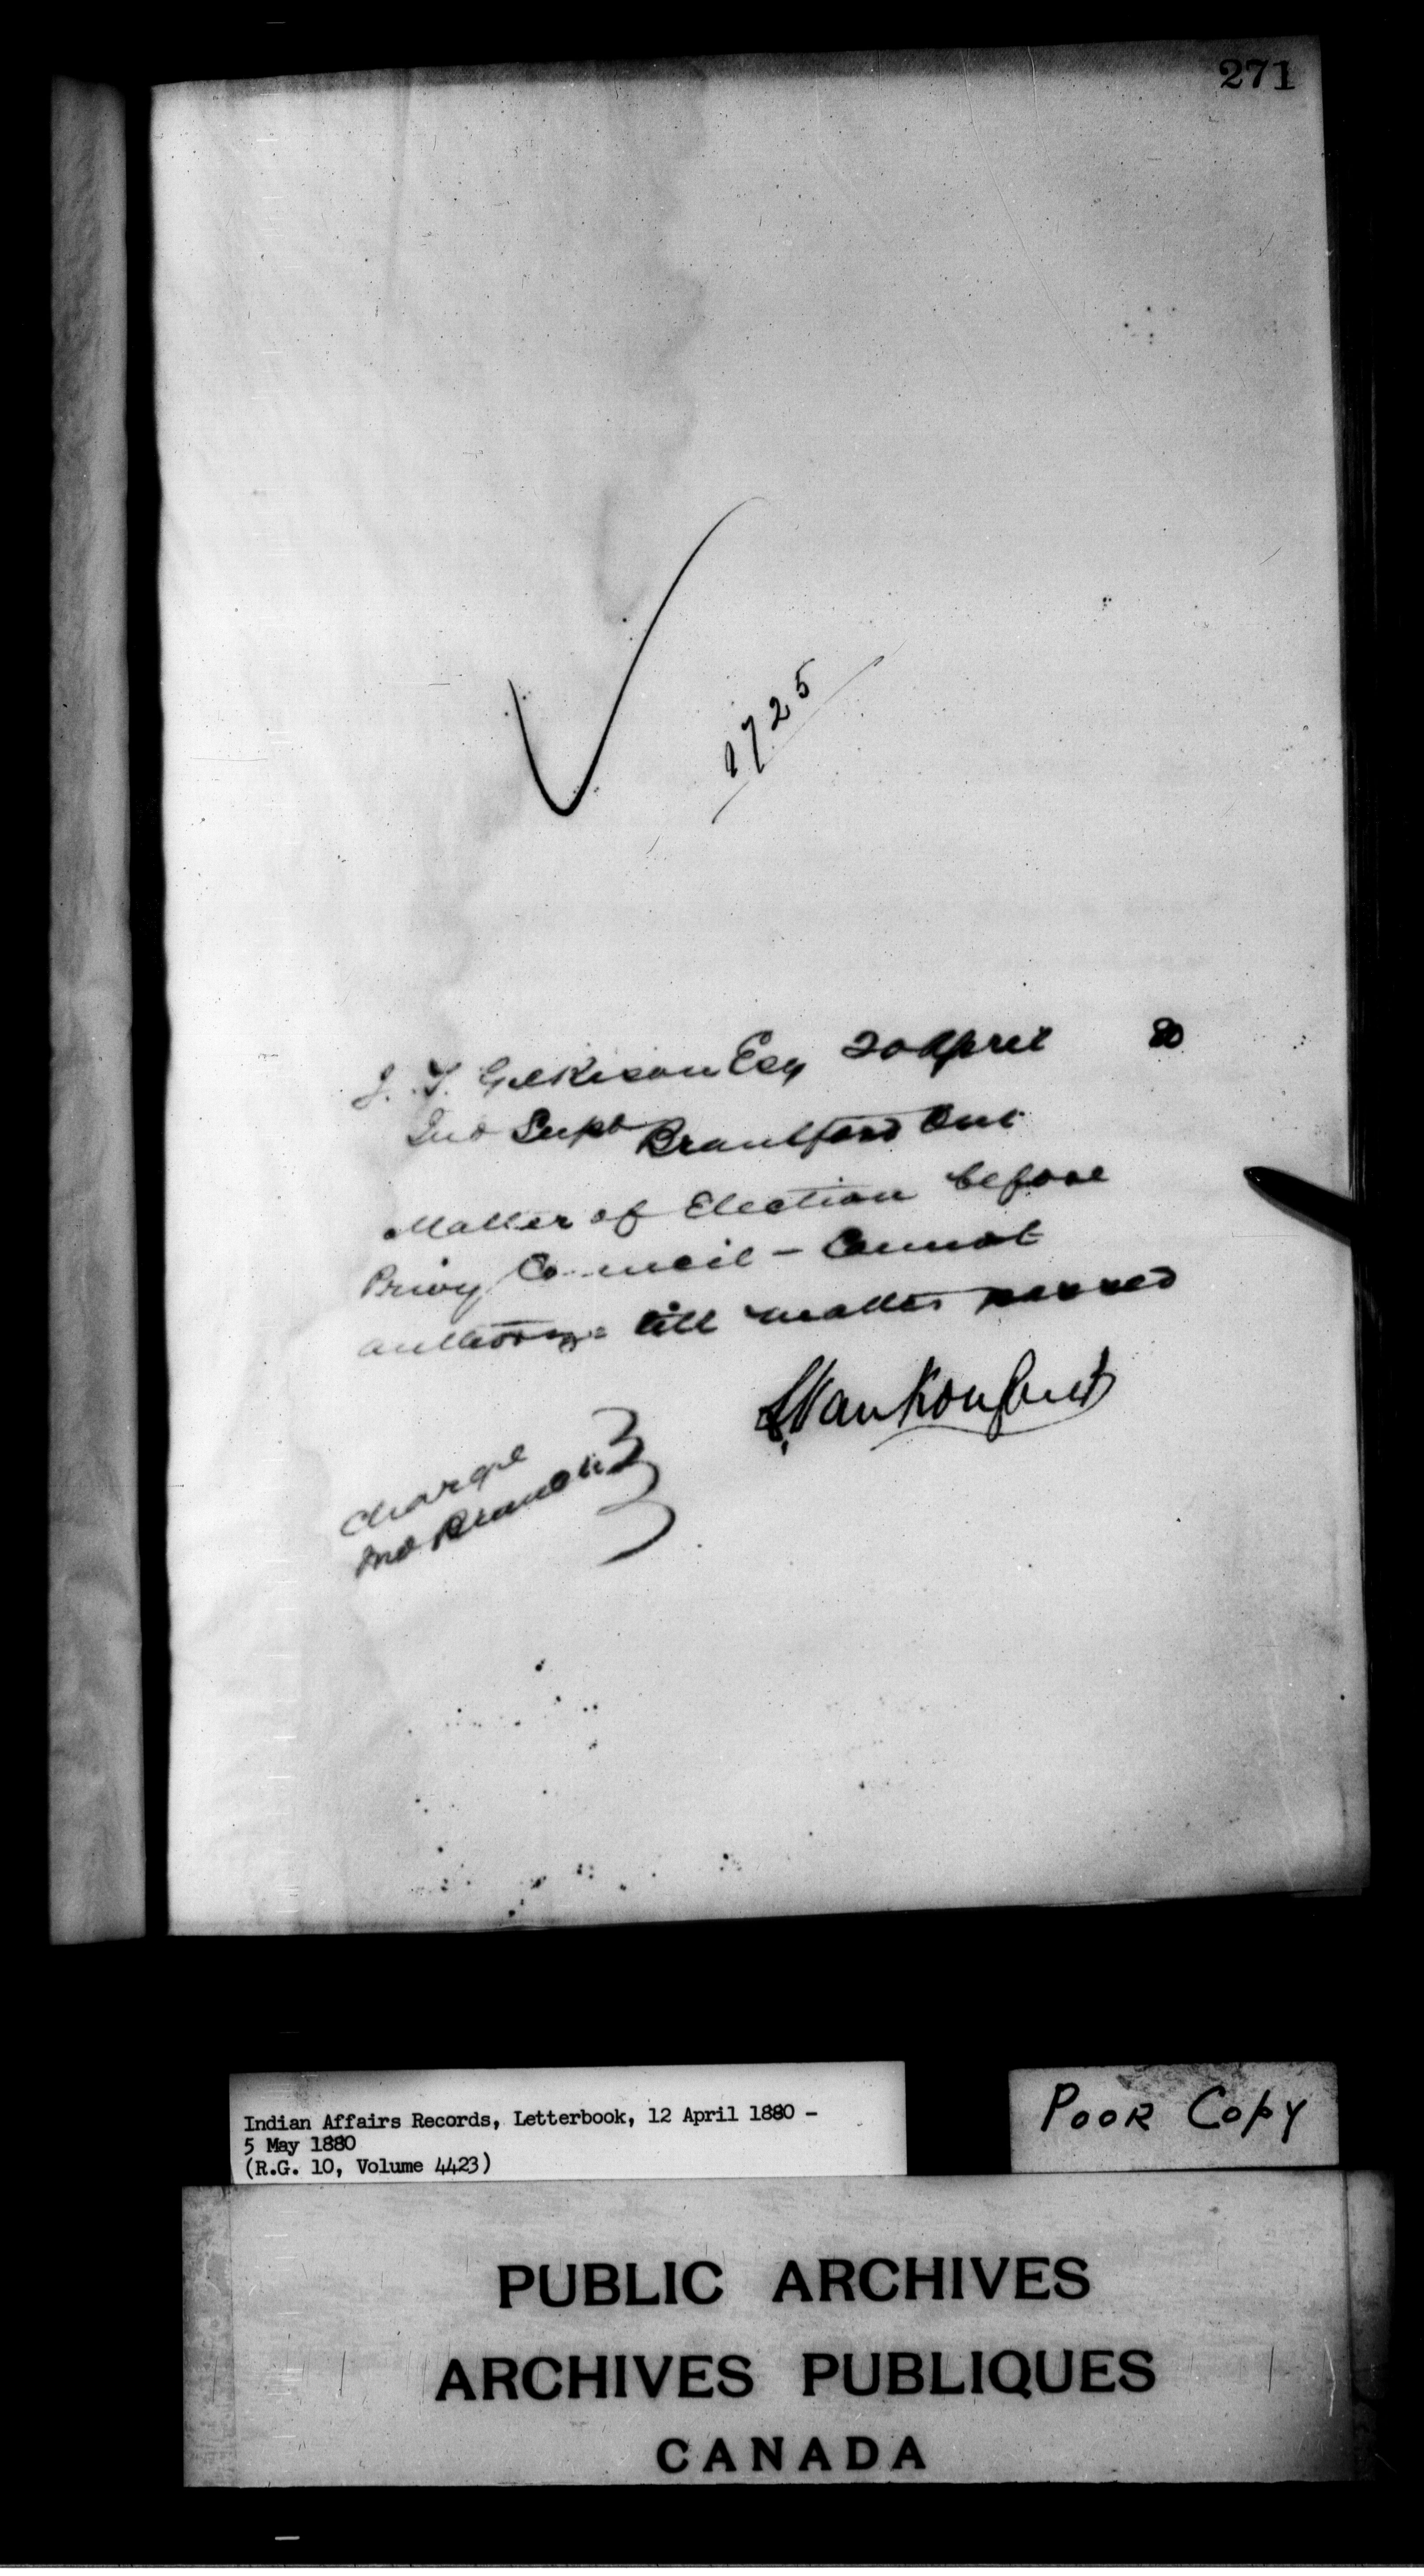 271
1725
J. T. Gilkison Esq 20 April 80
Ind Supt Brantford Ont
Matter of Election before
Privy Council - Cannot
till matter passed
L. VanKoughnet
Charge
Ind Branch
Indian Affairs Records, Letterbook, 12 April 1880 -
5 May 1880
(R.G. 10, Volume 4423)
POOR COPY
PUBLIC ARCHIVES
ARCHIVES PUBLIQUES
CANADA